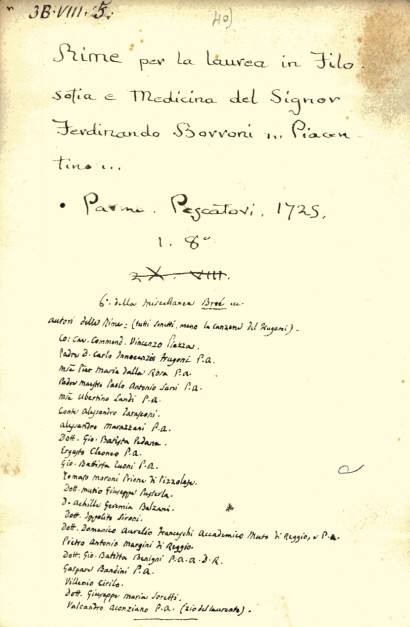 3B.VIII.5.
40)
Rime per la laurea in Filo-
sofia e Medicina del Signor
Ferdinando Borroni ... Piacen-
tino ...
• Parma. Pescatori. 1725.
1. 8°
2.X. VIII.
6° della miscellanea Broé ...
autori delle Rime: (tutti sonetti, meno la canzone del Frugoni).
Co: Cav. Commend. Vincenzo Piazza.
Padre D. Carlo Innocenzio Frugoni P.A.
Mse Pier Maria dalla Rosa P.A.
Padre Maestro Paolo Antonio Sarti P.A.
Mse Ubertino Landi P.A.
Conte Alessandro
Alessandro Marazzani P.A.
Dott. Gio. Batista Padana.
Ergasto Cleoneo P.A.
Gio. Battista Luoni P.A.
Tomaso Moroni Priore di Pizzolese.
Dott. Mutio Giuseppe Pusterla.
D. Achille Geremia Balzani.
Dott. Ippolito Sironi.
Dott. Domenico Aurelio Franceschi Accademico Muto di Reggio, e P.A.
Pietro Antonio Margini di Reggio.
Dott. Gio. Batista Benigni P.A. a. D.R.
Gaspare Bandini P.A.
Villenio Cirilo.
Dott. Giuseppe Maria Soretti.
Valcandro Aconziano P.A. (zio del laureato).